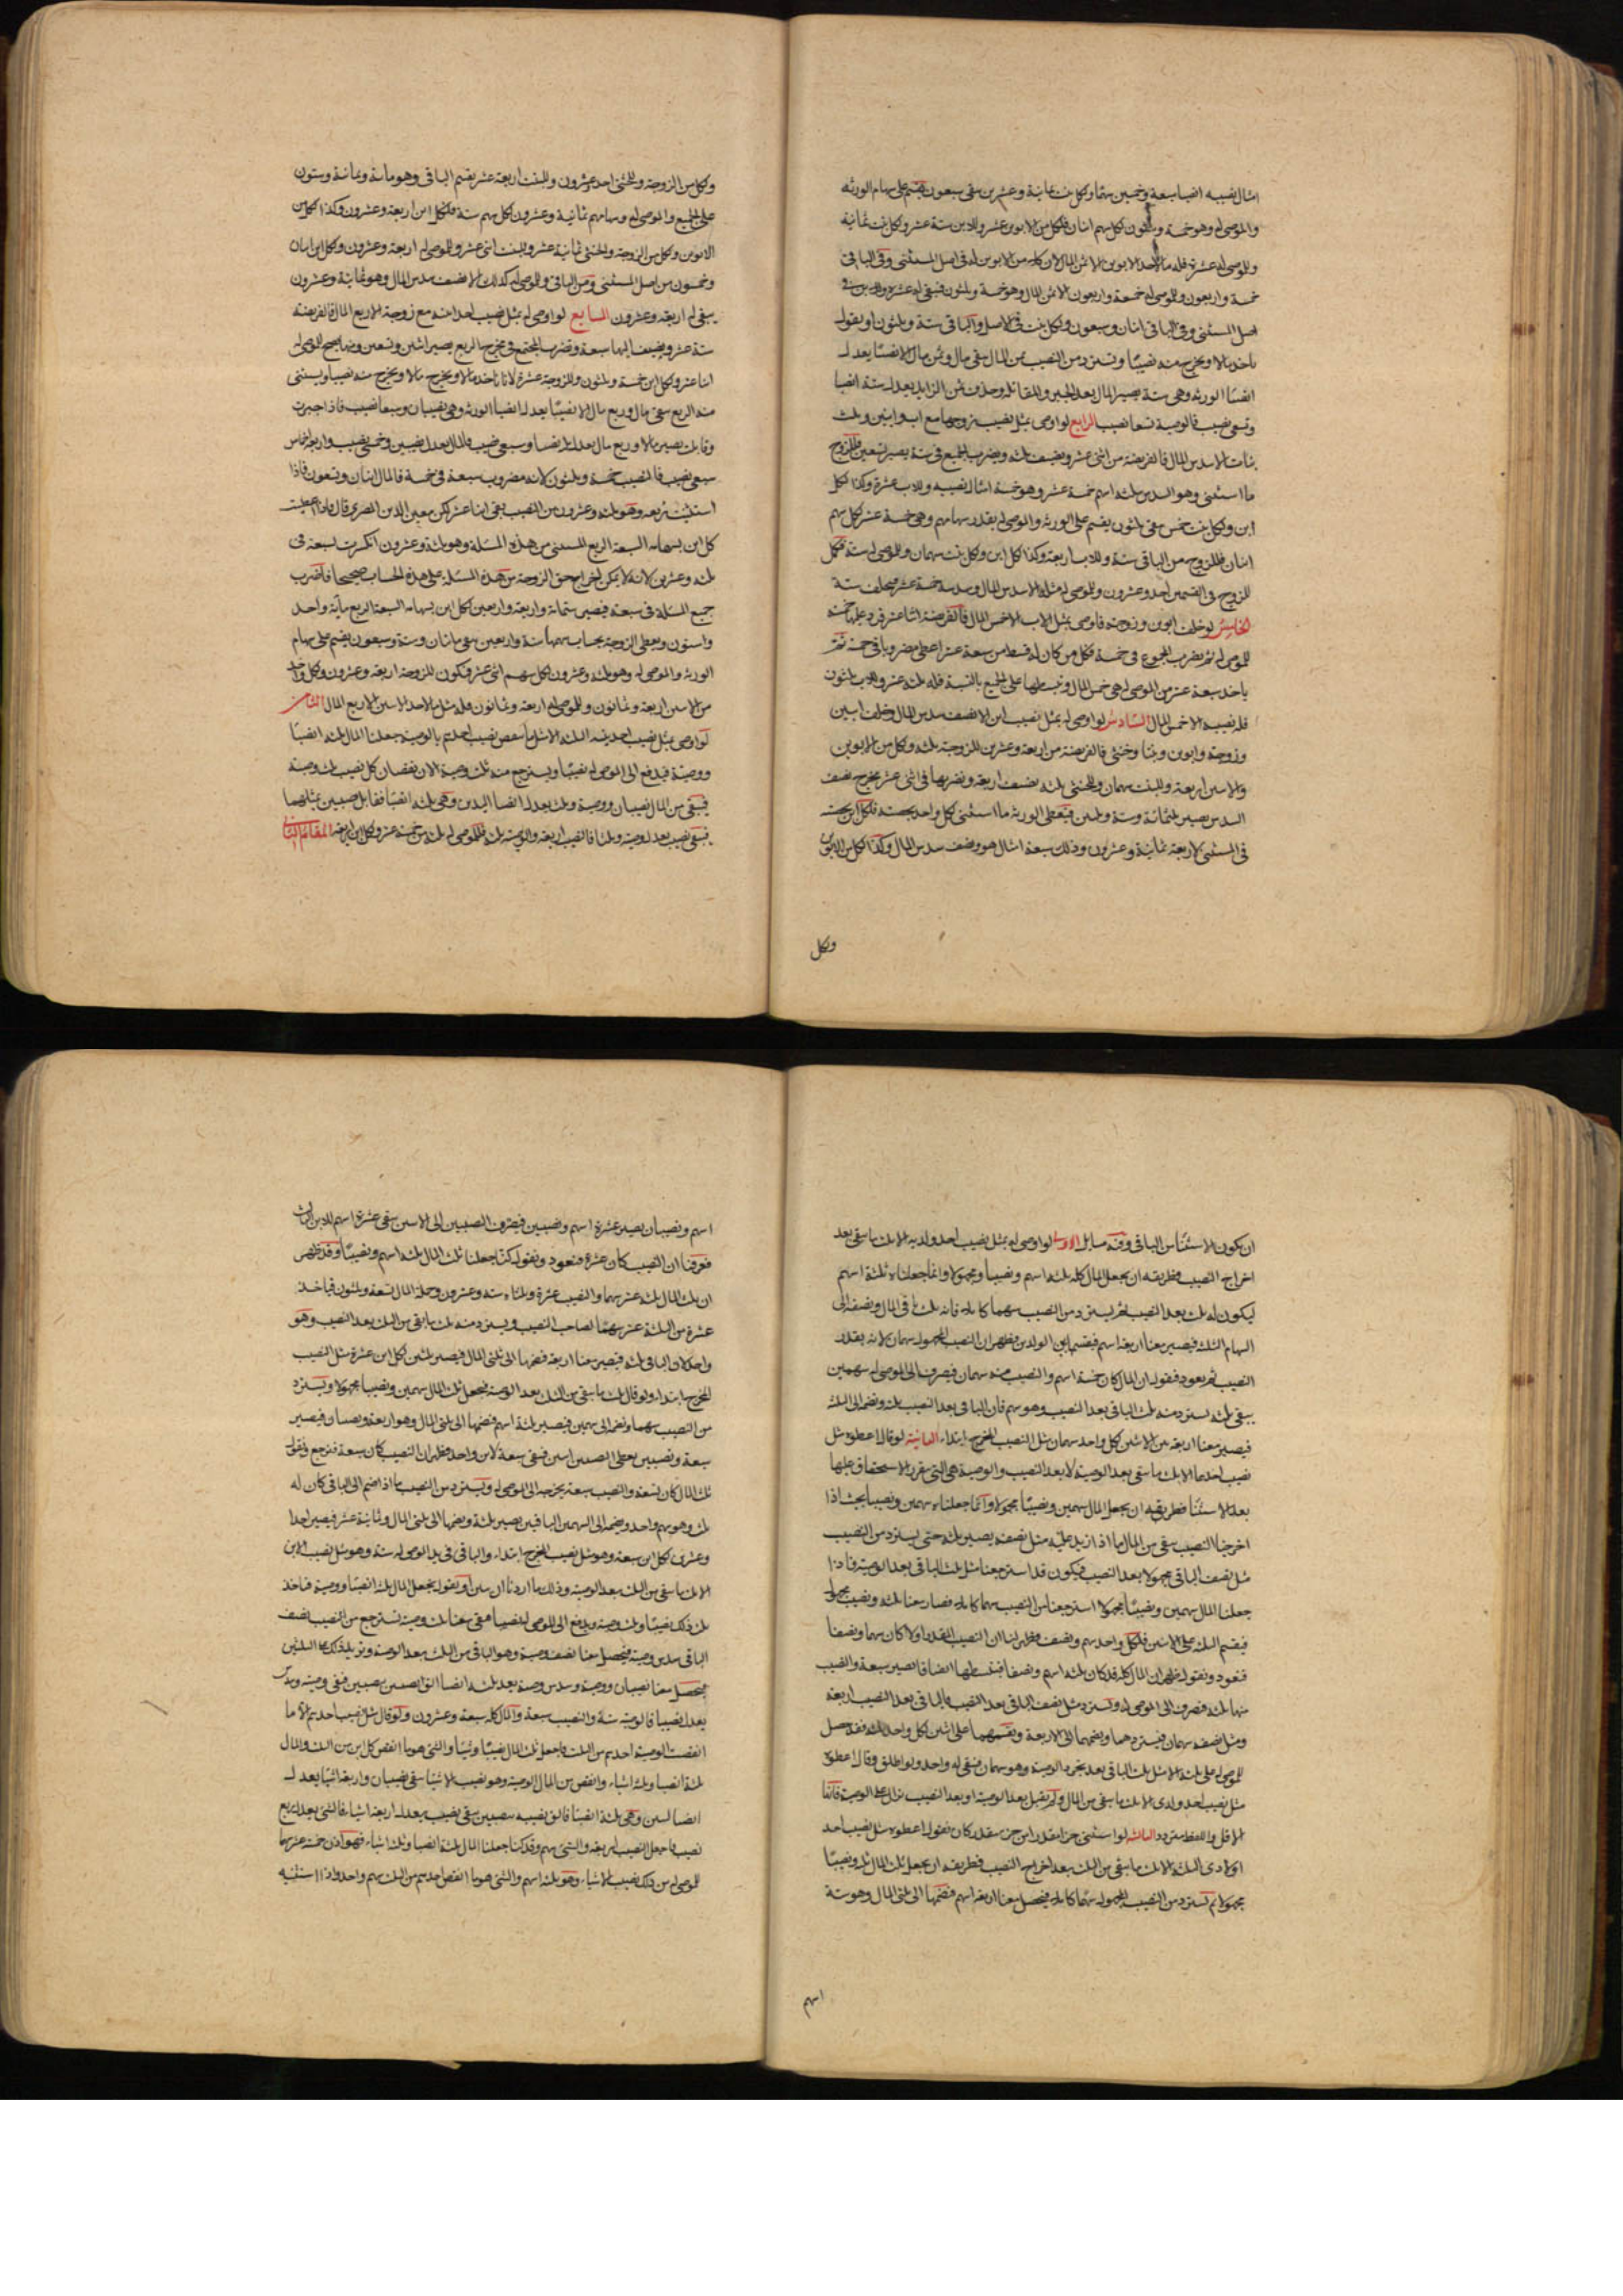 امثال نصيبه انصبا سبعة وخمسين سهما ولكل بنت ثمانية وعشرين يبقى سبعون يقسم على سهام الورثه
والموصى له وهو خمسة وثلثون لكل سهم اثنان فلكل من الابوين عشر وللابن ستة عشر ولكل بنت ثمانية
وللموصى له عشرة فله مال احد الابوين الا ثمن المال لان لكل من الابوين له فى اصل المستثنى وفى الباقى
خمسة واربعون وللموصى له خمسة واربعون الا ثمن المال وهو خمسة وثلثون فيبقى له عشره وللابن فى
اصل المستثنى وفى الباقى اثنان وسبعون ولكل بنت فى الاصل والباقى ستة وثلثون او يقول
ناخذ مالا ويخرج منه نصيبا ونسترد من النصيب ثمن المال يبقى مال وثمن مال الا نصيبا يعدل
انصبا الورثه وهى ستة يصير المال بعد الجبر والمقابله وحذف ثمن الزايد يعدل ستة انصبا
وتسعى نصيب فالوصية تسعا نصيب الرابع لو اوصى بمثل نصيب زوجها مع اب وابنين وثلث
بنات الا سدس المال فالفريضة من اثنى عشر ويضيف ثلثه ويضرب الجميع فى ستة يصير تسعين فللزوج
ما استثنى وهو السدس بثلثه اسهم خمسة عشر وهو خمسة امثال نصيبه وللاب عشرة وكذا لكل
ابن ولكل بنت خمس يبقى ثلثون يقسم على الورثه والموصى له بقدر سهامهم وهى خمسة عشر لكل سهم
اثنان فللزوج من الباقى ستة وللاب اربعة وكذا لكل ابن ولكل بنت سهمان وللموصى له ستة فكمل
للزوج فى القسمين احد وعشرون وللموصى له مثله الا سدس المال وسدسه خمسة عشر فيخلف ستة
الخامس لو خلف ابوين وزوجة فاوصى بمثل الاب الا خمس المال فالفريضة اثنا عشر فزد عليها خمسة
للموصى له ثم يضرب المجموع فى خمسة فكل من كان له قسط من سبعة عشر اعطى مضروبا فى خمسة ثم
ياخذ سبعة عشر من الموصى له هى خمس المال ونبسطها على الجميع بالنسبة فله ثلثة عشر وللاب ثلثون
فله نصيبه الا خمس المال السادس لو اوصى له بمثل نصيب ابن الا نصف سدس المال وخلف ابنين
وزوجة وابوين وبنتا وخنثى فالفريضة من اربعة وعشرين للزوجة ثلثة ولكل من الابوين
والابنين اربعة وللبنت سهمان وللخنثى ثلثه يضيف اربعة ونضربها فى اثنى عشر مخرج نصف
السدس يصير ثلثمائة وستة وثلثين فيعطى الورثه ما استثنى كل واحد بحصته فلكل ابن بحصته
فى المستثنى الاربعة ثمانية وعشرون وذلك سبعة امثال هو ونصف سدس المال وكذا لكل من الابوين
ولكل
ولكل من الزوجة وللخنثى احد وعشرون وللبنت اربعة عشر يقسم الباقى وهو مائة وثمانية وستون
على الجميع والموصى له وسهامهم ثمانية وعشرون لكل سهم ستة فلكل ابن اربعة وعشرون وكذا لكل من
الابوين ولكل من الزوجة والخنثى ثمانية عشر وللبنت اثنى عشر وللموصى له اربعة وعشرون ولكل ابن اثنان
وخمسون من اصل المستثنى ومن الباقى وللموصى له كذلك الا نصف سدس المال وهو ثمانية وعشرون
يبقى له اربعة وعشرون السابع لو اوصى له بمثل نصيب احد ابنيه مع زوجة الا ربع المال فالفريضة
ستة عشر ويضيف اليها سبعة ونضرب المجتمع فى مخرج الربع يصير اثنين وتسعين ومنها يصح للموصى له
اثنا عشر ولكل ابن خمسة وثلثون وللزوجة عشرة لانا ناخذ مالا ويخرج مالا ويخرج منه نصيبا ويستثنى
منه الربع يبقى مال وربع مال الا نصيبا يعدل انصبا الورثه وهى نصيبان وسبعا نصيب فاذا جبرت
وقابلت يصير مالا وربع مال يعدل ثلثة انصبا وسبعى نصيب فالمال يعدل نصيبين وخمسى نصيب واربعة اخماس
سبعى نصيب فالنصيب خمسة وثلثون لانه مضروب سبعة فى خمسة فالمال اثنان وتسعون فاذا
استثنيت ربعه وهو ثلثه وعشرون من النصيب يبقى اثنا عشر لكن معين الدين المصرى قال فاذا اعطيت
كل ابن بسهامه السبعة الربع المستثنى من هذه المسئلة وهو ثلثة وعشرون انكسرت لسبعة فى
ثلثه وعشرين لانه لا يمكن اخراج حق الزوجة من هذه المسئلة على هذه الحساب صحيحا فاضرب
جميع المسئلة فى سبعة فيصير ستمائة واربعة واربعين لكل ابن بسهامه السبعة الربع مائة واحد
وستون ويعطى الزوجة بحساب سهمها ستة واربعين يبقى مائتان وستة وسبعون يقسم على سهام
الورثة والموصى له وهو ثلثه وعشرون لكل سهم اثنى عشر فيكون للزوجة اربعة وعشرون ولكل واحد
من الابنين اربعة وثمانون وللموصى له اربعة وثمانون فله مثل ما لاحد الابنين الا ربع المال الثامن
لو اوصى بمثل نصيب احد بنيه الثلثة الا مثل ما نقص نصيب احدهم بالوصية جعلنا المال ثلثه انصبا
ووصية فيدفع الى الموصى له نصيبا ويسترجع منه ثلث وصية لان نقصان كل نصيب ثلث وصية
فيبقى من المال نصيبان ووصية وثلث يعدل انصبا البنين وهى ثلثة انصبا فقابل نصيبين بمثلهما
فيبقى نصيب يعدل وصية وثلثا فالنصيب اربعة والوصية ثلثة فللموصى له ثلثة من خمسة عشر ولكل ابن اربعة المقام الثانى
ان يكون الاستثنا من الباقى وفيه مسايل الاولى لو اوصى له بمثل نصيب احد ولديه الا ثلث ما يبقى بعد
اخراج النصيب فطريقه ان يجعل المال كله ثلثه اسهم ونصيبا مجهولا وانما جعلناه ثلثة اسهم
ليكون له ثلث بعد النصيب ثم يسترد من النصيب سهما كاملا فانه ثلث باقى المال ونضيفه الى
السهام الثلثه فيصير معنا اربعة اسهم فيقسم بين الولدين فظهر ان النصيب المجهول سهمان لانه بقدر
النصيب ثم يعود فنقول ان المال كان خمسة اسهم والنصيب منه سهمان فيصرف الى الموصى له سهمين
يبقى ثلثه يسترد منه ثلث الباقى بعد النصيب وهو سهم فان الباقى بعد النصيب ثلثه ونضمه الى الثلثة
فيصير معنا اربعة بين الاثنين لكل واحد سهمان مثل النصيب المخرج ابتداء الثانية لو قال اعطوه مثل
نصيب احدهما الا ثلث ما يبقى بعد الوصية لا بعد النصيب والوصية هى التى يتقرر الاستحقاق عليها
بعد الاستثنا فطريقه ان يجعل المال سهمين ونصيبا مجهولا وانما جعلناه سهمين ونصيبا بحيث اذا
اخرجنا النصيب يبقى من المال ما اذا زيد عليه مثل نصفه يصير ثلثه حتى يسترد من النصيب
مثل نصف الباقى مجهولا بعد النصيب فيكون قد استرجعنا مثل ثلث الباقى بعد الوصية فاذا
جعلنا المال سهمين ونصيبا مجهولا استرجعنا من النصيب سهما كاملا فصار معنا ثلثه ونصيب مجهول
فيقسم الثلثه على الاثنين فلكل واحد سهم ونصف فظهر لنا ان النصيب المقدر اولا كان سهما ونصفا
فنعود ونقول ظهر ان المال كله قد كان ثلثه اسهم ونصفا فبسطها انصافا يصير سبعة والنصيب
منها ثلثه فصرف الى الموصى له ونسترد مثل نصف الباقى بعد النصيب فالباقى بعد النصيب اربعة
ومثل نصفه سهمان فيستردهما ويضمهما الى الاربعة ونقسمهما على اثنين لكل واحد ثلثه فقد حصل
للموصى له على ثلثه الا مثل ثلث الباقى بعد مجرد الوصية وهو سهمان فيبقى له واحد ولو اطلق وقال اعطوه
مثل نصيب احد ولدى الا ثلث ما يبقى من المال ولم يقبل بعد الوصية او بعد النصيب نزل على الوصية فانها
الاقل واللفظ متردد الثالثة لو استثنى جزءا مقدرا من جزء مقدر كان يقول اعطوه مثل نصيب احد
اولادى الثلثة الا ثلث ما يبقى من الثلث بعد اخراج النصيب فطريقه ان يجعل ثلث المال ثلثه ونصيبا
مجهولا ثم نسترد من النصيب المجهول سهما كاملا فيحصل معنا اربعة اسهم فنضمها الى ثلثى المال وهو ستة
اسهم
اسهم ونصيبان يصير عشرة اسهم ونصيبين فيصرف النصيبين الى الابنين يبقى عشرة اسهم للابن الثالث
فعرفنا ان النصيب كان عشرة فنعود ونقول كنا جعلنا ثلث المال ثلثه اسهم ونصيبا وقد ظهر
ان ثلث المال ثلثه عشر سهما والنصيب عشرة وثلثاه ستة وعشرون وجملة المال تسعة وثلثون فياخذ
عشرة من الثلثة عشر سهما لصاحب النصيب ويسترد منه ثلث ما يبقى من الثلث بعد النصيب وهو
واحد لان الباقى ثلثه فيصير معنا اربعة فضمها الى ثلثى المال فيصير ثلثين لكل ابن عشرة مثل النصيب
المخرج ابتداء ولو قال ثلث ما يبقى من الثلث بعد الوصية فيجعل ثلث المال سهمين ونصيبا مجهولا ويسترد
من النصيب سهما ونضمه الى سهمين فيصير ثلثة اسهم فضمها الى ثلثى المال وهو اربعة ونصيبان فيصير
سبعة ونصيبين يعطى النصيبين ابنين فيبقى سبعة لابن واحد فظهر ان النصيب كان سبعة فنرجع ونقول
ثلث المال كان تسعة والنصيب سبعة يخرجه الى الموصى له ويسترد من النصيب ما اذا ضم الى الباقى كان له
ثلث وهو سهم واحد ويضمه الى السهمين الباقيين يصير ثلثة ويضمها الى ثلثى المال وثمانية عشر فيصير احدا
وعشرين لكل ابن سبعة وهو مثل نصيب المخرج ابتداء والباقى فى يد الموصى له ستة وهو مثل نصيب الابن
الا ثلث ما يبقى من الثلث بعد الوصية وذلك ما اردنا ان نبين او يقول يجعل المال ثلثة انصبا ووصية فناخذ
ثلث ذلك نصيبا وثلث وصية ويدفع الى الموصى له نصيبا فيبقى معنا ثلث وصية نسترجع من النصيب نصف
الباقى سدس وصية فيحصل معنا نصف وصية وهو الباقى من الثلث بعد الوصية ونزيد ذلك على الثلثين
فيحصل معنا نصيبان ووصية وسدس وصية يعدل ثلثه انصبا الق نصيبين بنصيبين فيبقى وصية وسدس
يعدل نصيبا فالوصية ستة والنصيب سبعة والمال كله سبعة وعشرون ولو قال مثل نصيب احدهم الا ما
انتقصت الوصية احدهم من الثلث فاجعل ثلث المال نصيبا وشيئا والشئ هو ما انتقص كل ابن من الثلث والمال
ثلثة انصبا وثلثة اشياء وانقص من المال الوصية وهو نصيب الا شيئا يبقى نصيبان واربعة اشيا يعدل
انصبا البنين وهى ثلثة انصبا فالق نصيبين بنصيبين يبقى نصيب يعدل اربعة اشياء فالشئ يعدل ربع
نصيب فاجعل النصيب اربعة والشئ سهم وقد كنا جعلنا المال ثلثة انصبا وثلثة اشياء فهو اذن خمسة عشر سهما
للموصى له من ذلك نصيب الا شياء وهو ثلثه اسهم والشئ هو ما انتقص احدهم من الثلث سهم واحد واذا استثنيته